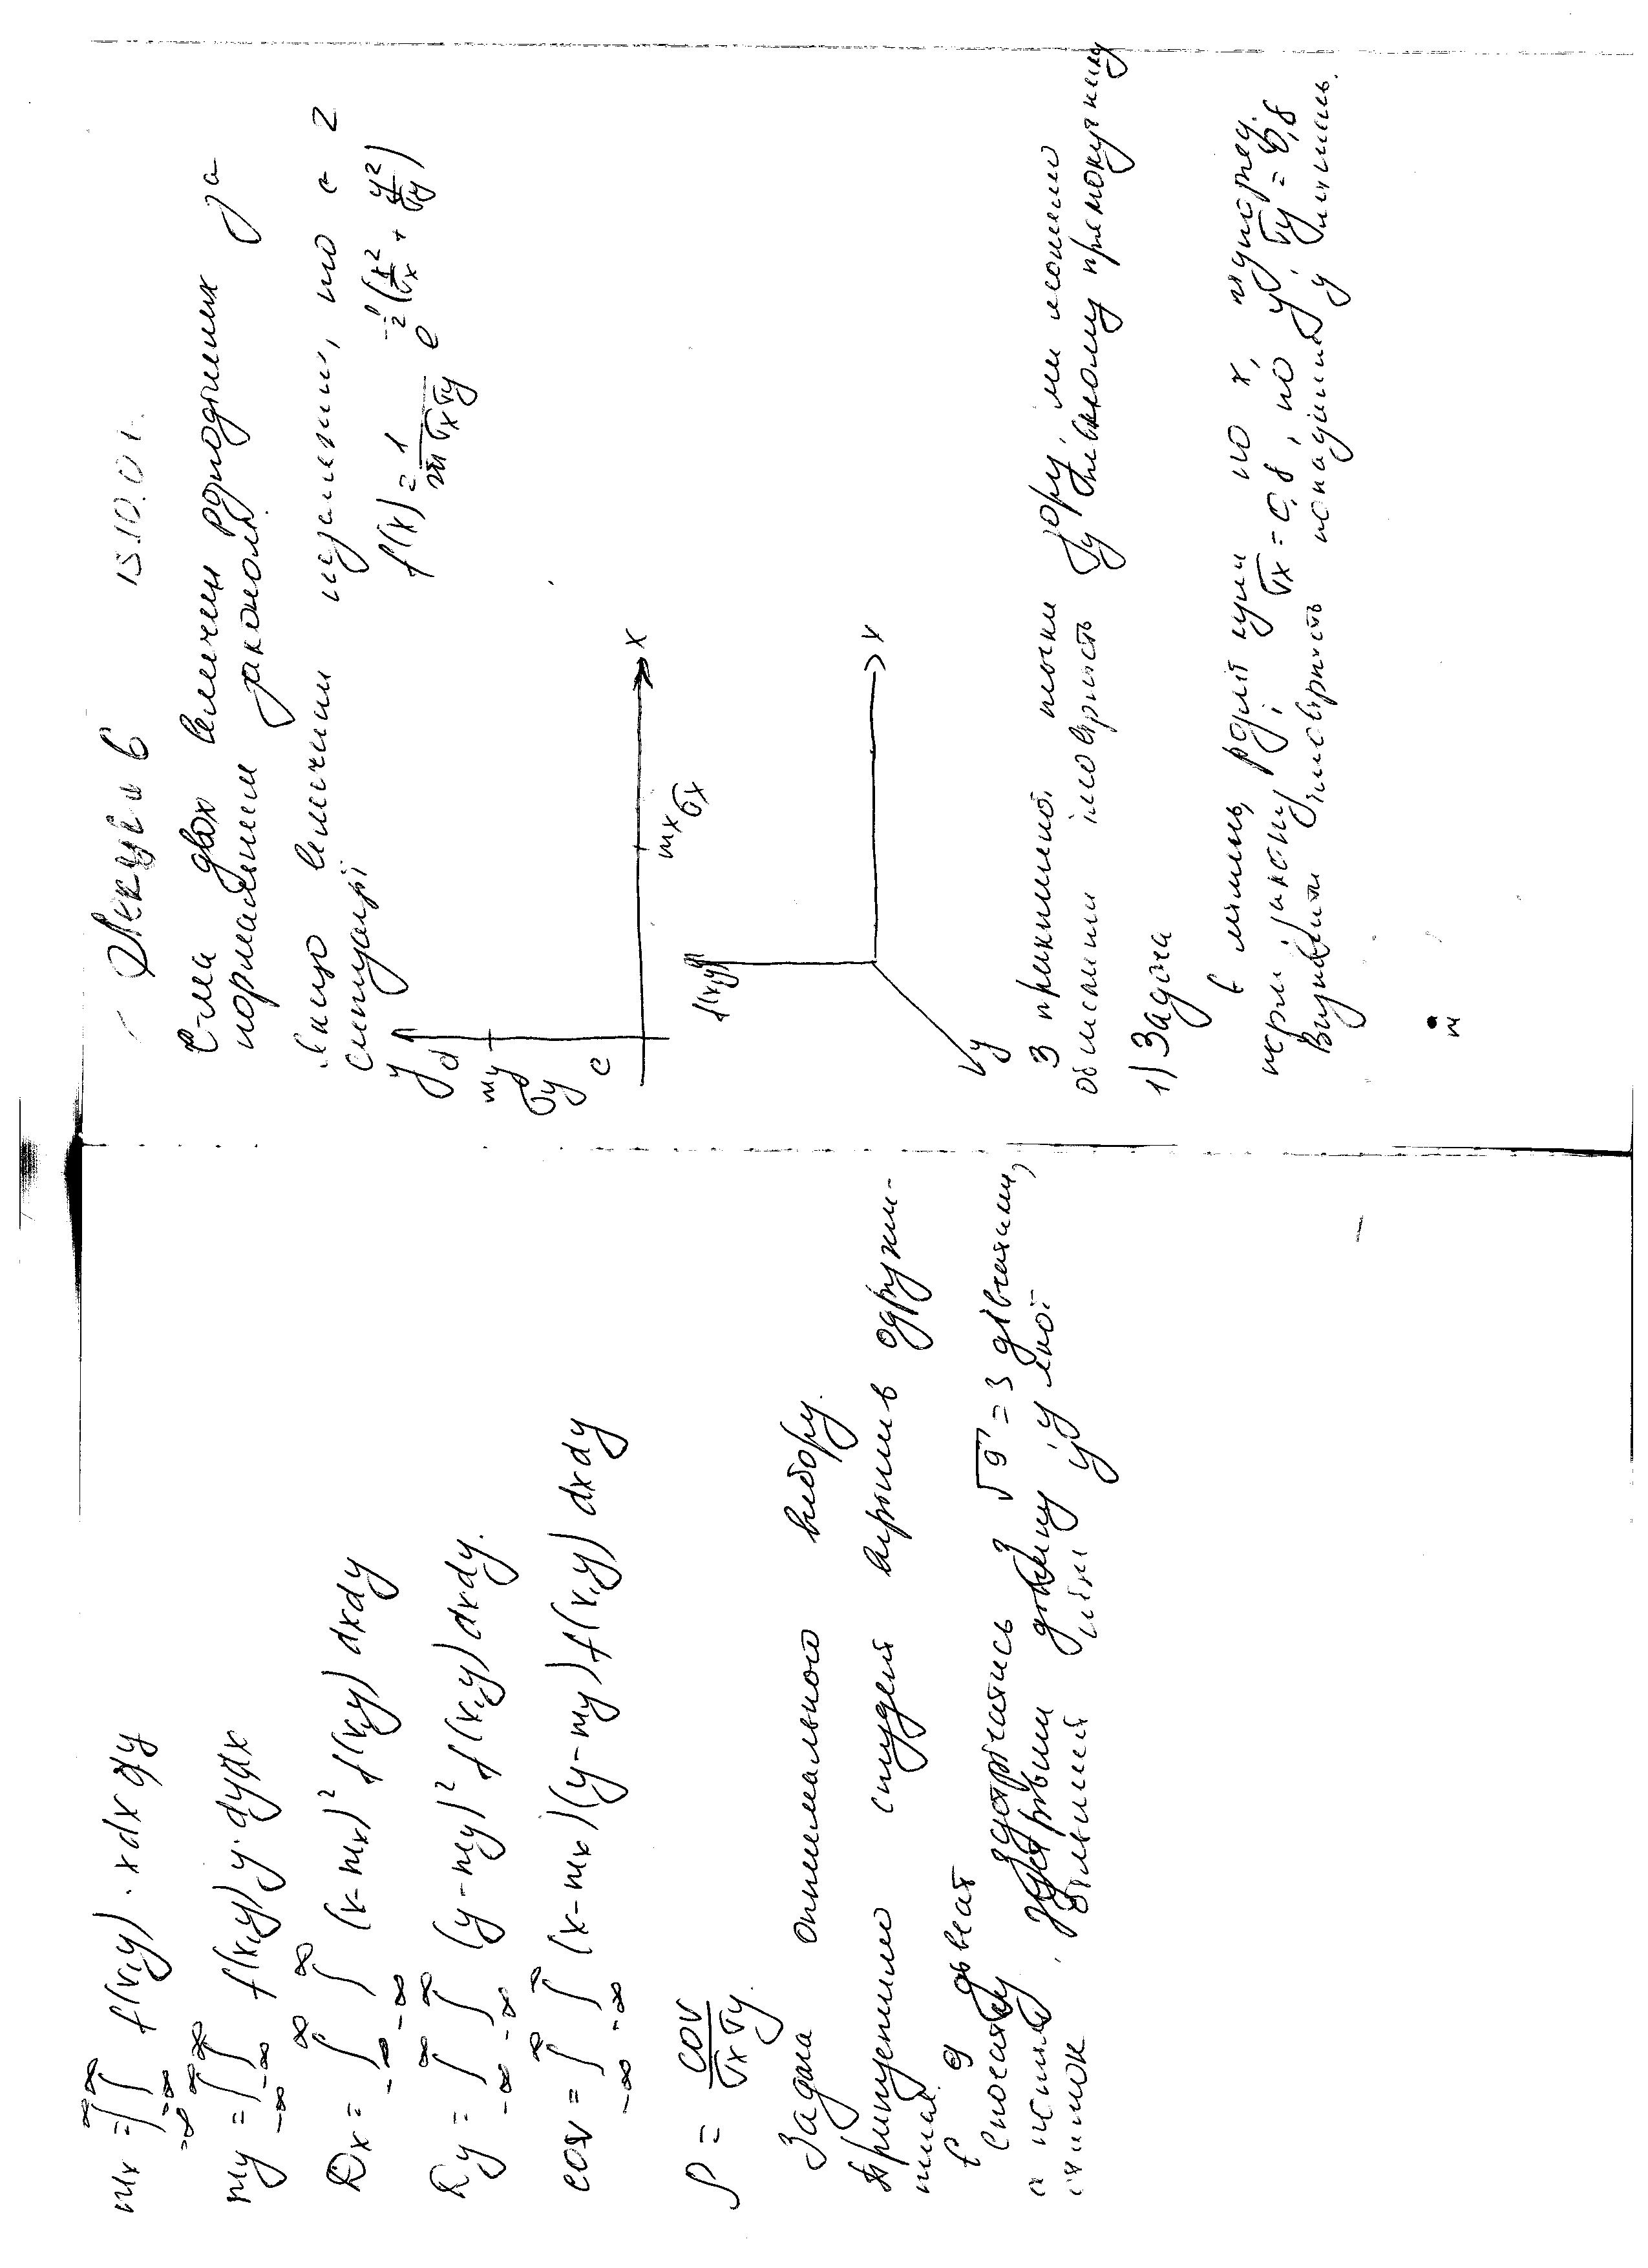 mx = ∫∫ f(x,y) · x dx dy
-∞ ∞
my = ∫∫ f(x,y) y · dy dx
-∞ ∞
Dx = ∫ ∫ (x-mx)² f(x,y) dx dy
-∞ ∞ -∞ ∞
Dy = ∫ ∫ (y-my)² f(x,y) dx dy.
-∞ ∞ -∞ ∞
cov = ∫ ∫ (x-mx)(y-my) f(x,y) dx dy
-∞ ∞ -∞ ∞
ρ = cov / σx σy.
Задача оптимального вибору.
Припустимо студент вирішив одружи-
тися.
є 9 дівчат
Спочатку зустрічались з √9 = 3 дівчатами,
а потім зустрівши дівчину у якої
Лекція 6 15.10.01.
С-ма двох величин розподілених за
нормальним законом.
Якщо величини незалежні, то є 2
ситуації
f(x) = 1 / 2π σx σy e -1/2 (x²/σx + y²/σy)
y
d
my
σy
c
mx σx
x
f(x,y)
x
y
З принципової точки зору, ми можемо
обчислити імовірність у такому прямокутнику
1) Задача
є мішень, розліт кулі по x, підпоряд.
норм. закону, σx = 0,8, по y, σy = 0,8
Визначити імовірність попадання у мішень.